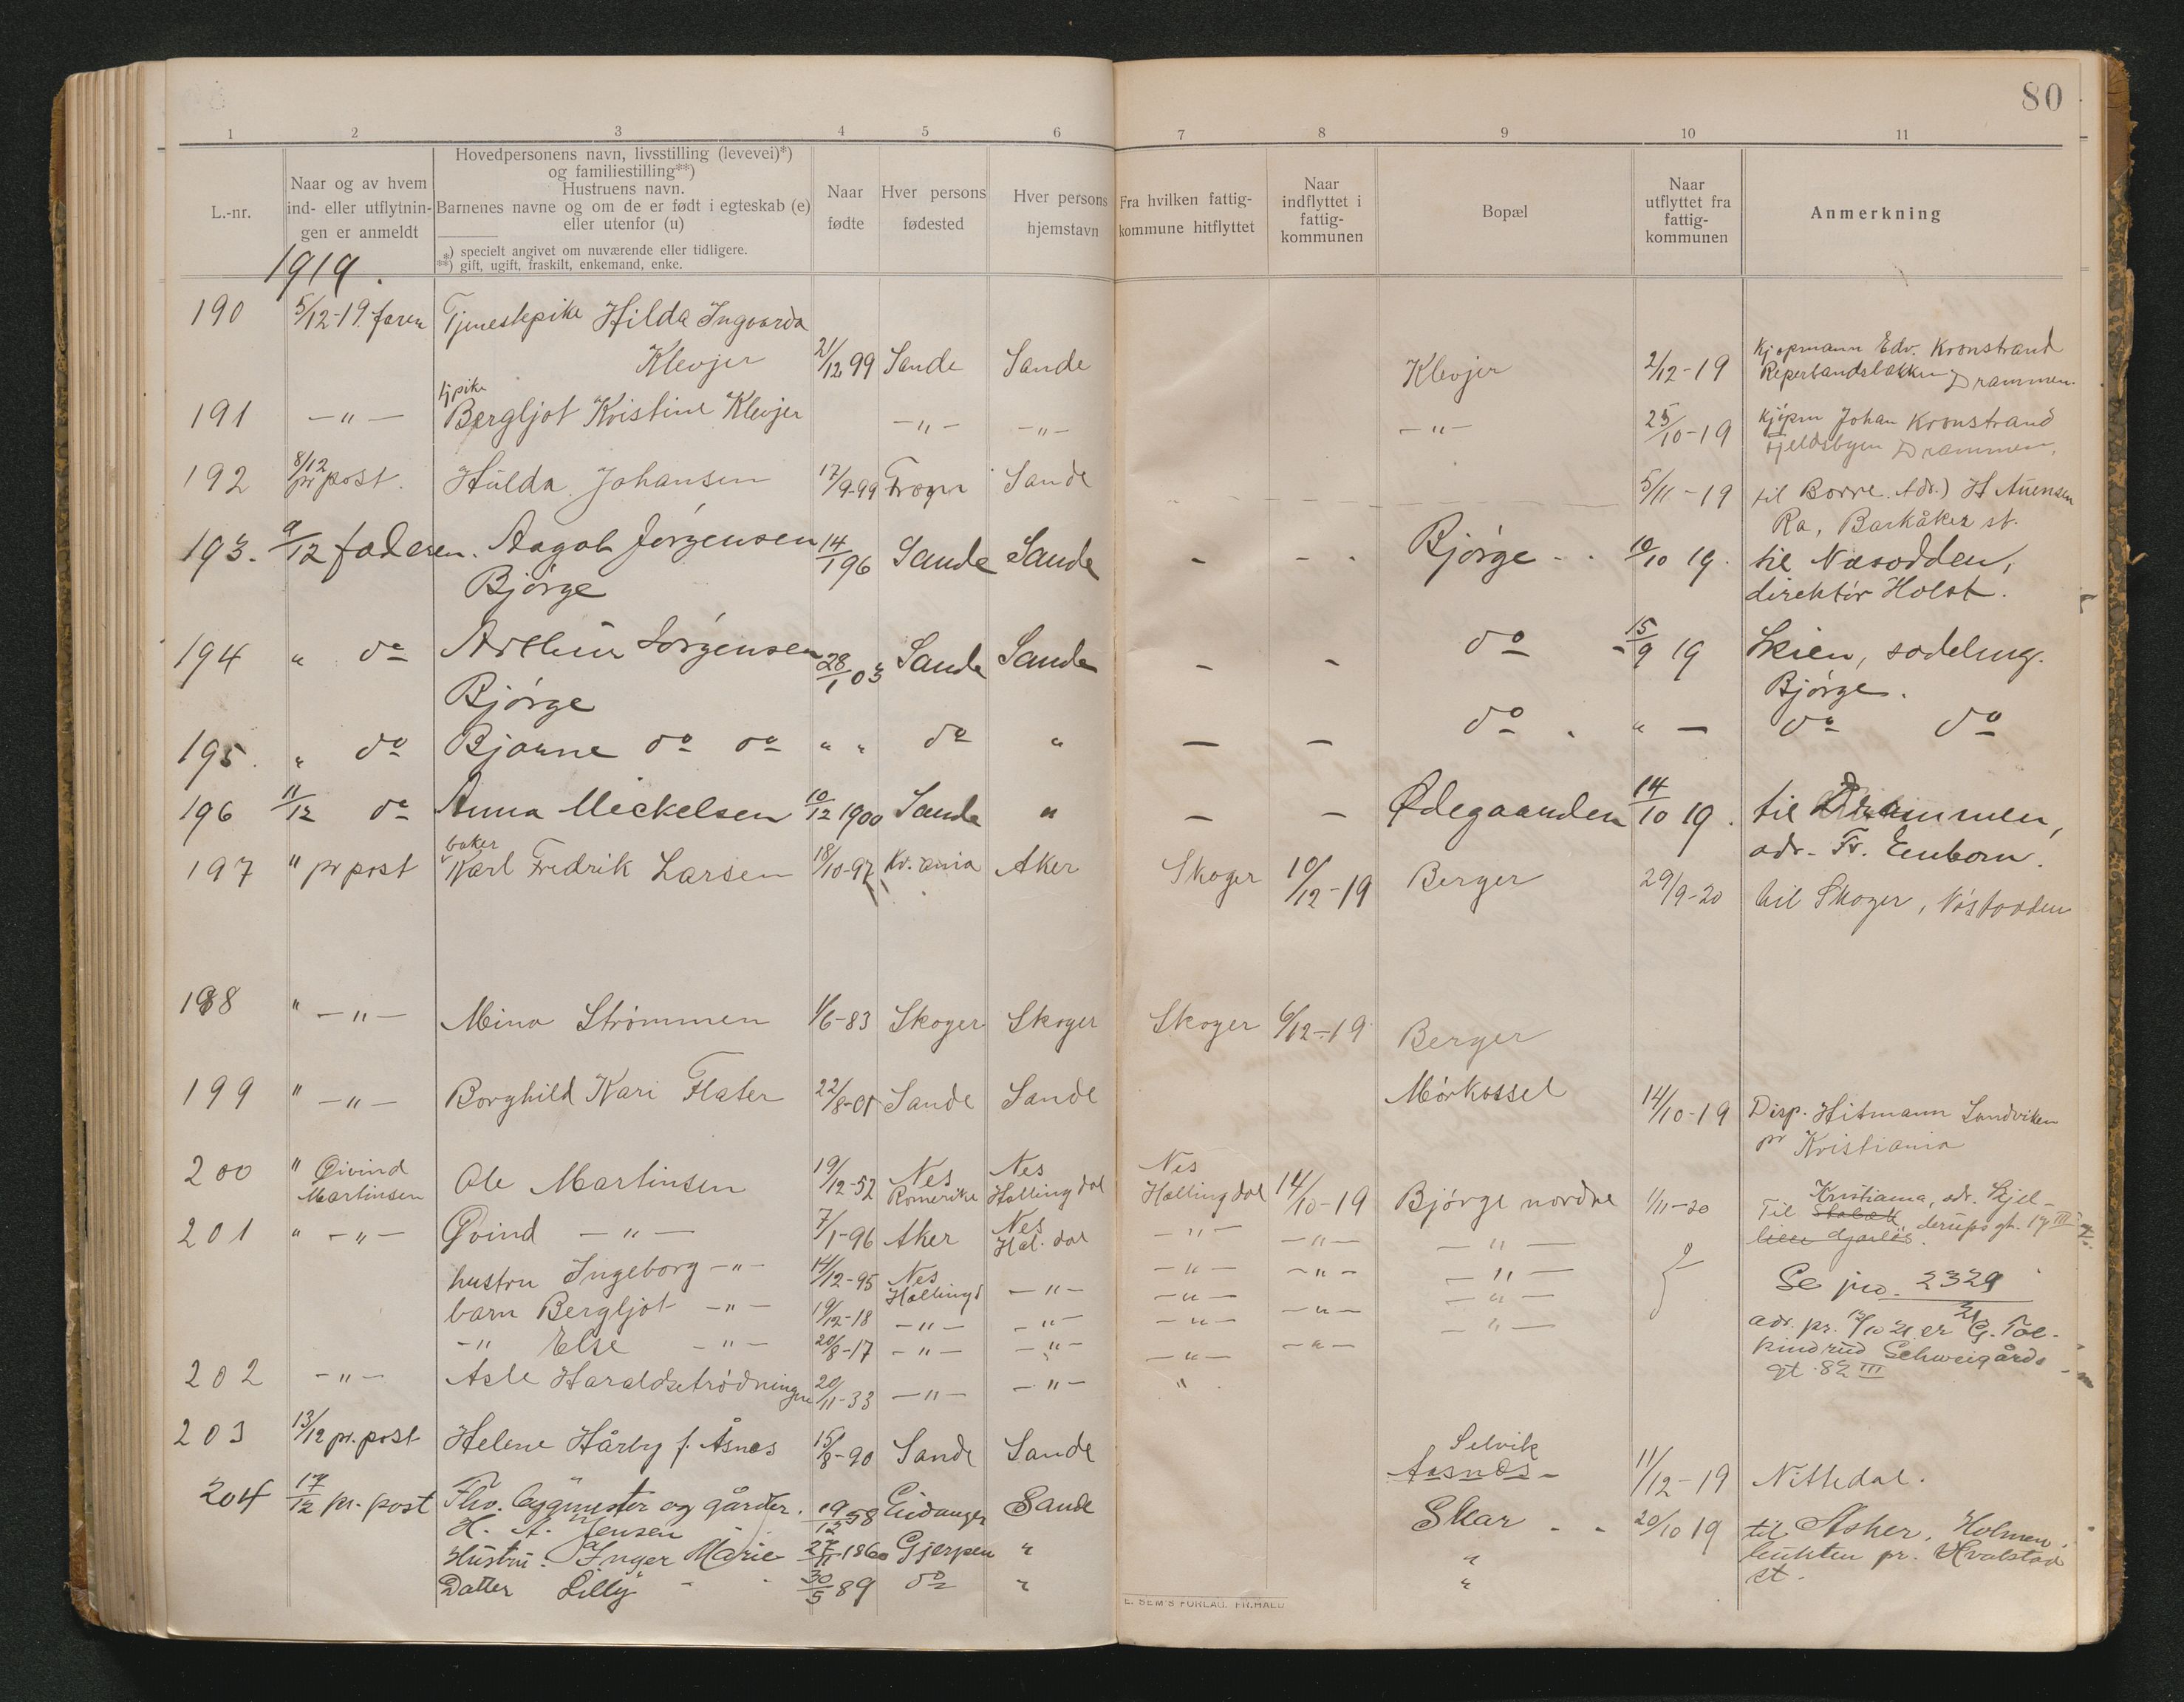 80
1 2 3 4 5 6 7 8 9 10 11
L.-nr.
Naar og av hvem
ind- eller utflytnin-
gen er anmeldt
Hovedpersonens navn, livsstilling (levevei)*)
og familiestilling**)
Hustruens navn.
Barnenes navne og om de er født i egteskab (e)
eller utenfor (u)
*) specielt angivet om nuværende eller tidligere.
**) gift, ugift, fraskilt, enkemand, enke.
Naar
fødte
Hver persons
fødested
Hver persons
hjemstavn
Fra hvilken fattig-
kommune hitflyttet
Naar
indflyttet i
fattig-
kommunen
Bopæl
Naar
utflyttet fra
fattig-
kommunen
Anmerkning
1919.
190 5/12-19. faren Tjenestepike Hilda Ingvarda
Klevjer 21/12 99 Sande Sande Klevjer 2/12-19 Kjøpmann Edv. Kronstrand
Reperbandsbakken Drammen.
tj pike
191 -"- Bergljot Kristine Klevjer -"- -"- -"- 25/10-19 Kjøpm Johan Kronstrand
Fjeldsbyen Drammen,
192 8/12 pr post. Hulda Johansen 17/9-99 Frogn Sande 5/11-19 til Borre. Adr.) H Auensen
Ra, Barkåker st.
193. 9/12 faderen. Aagot Jørgensen 14/1 96 Sande Sande - - - Bjørge - - 10/10 19. til Næsodden,
Bjørge direktør Holst.
194 " do Arthur Jørgensen 28/1 03 Sande Sande - - do - 15/9 19 Skien, sadelmg.
Bjørge Bjørge.
195. " do Bjarne do do " " do " - - do . " - do do
196 11/12 do Anna Mickelsen 10/12 1900 Sande " - - Ødegaarden 14/10 19. til Drammen,
adr. Fr. Enborn.
baker
197 " pr post Karl Fredrik Larsen 18/10-97 Kr. ania Aker Skoger 10/12-19 Berger 29/9-20 til Skoger, Nøstodden
198 " -"- Mina Strømmen 1/6-83 Skoger Skoger Skoger 6/12-19 Berger
199 " -"- Borghild Kari Flater 22/8-01 Sande Sande Mørkassel 14/10-19 Disp. Hitmann Sandviken
pr Kristiania
200 " Øivind
Martinsen Ole Martinsen 19/12-52 Nes
Romerike Nes
Hallingdal Nes
Hallingdal 14/10-19 Bjørge nordre 1/11-20 Til Kristiania, adr. Skjel-
Stabæk derups gt. 17 III
201 " -"- Øvind -"- 7/1-96 Aker Nes
Hal. dal -"- -"- -"-
hustru Ingeborg -"- 14/12-95 Nes
Hallingd -"- -"- -"- -"- Se jno. 2329
barn Bergljot -"- 19/12-18 -"- -"- -"- -"- -"-
-" Else -"- 20/8-17 -"- -"- -"- -"- -"- adr. pr. 12/10 21 er G. Tol-
kindrud Schweigårds
gt. 82 III
202 -"- Asle Haraldsetrødningen 20/11-33 -"- -"- "
203 13/12 pr. post Helene Hårby f. Åsnes 15/8-90 Sande Sande Selvik
Aasnes- 11/12-19 Nittedal.
204 17/12 pr. post Fhv. bygmester og gårder. 19/12 58 Eidanger Sande Skar - - 20/10 19 til Asker, Holmen,
H. A. Jensen
Hustru. Inger Marie 27/11-1860 Gjerpen " " bukten pr. Hvalstad
Datter Lilly - - 30/5 89 do " " st.
E. SEM'S FORLAG. FR.HALD